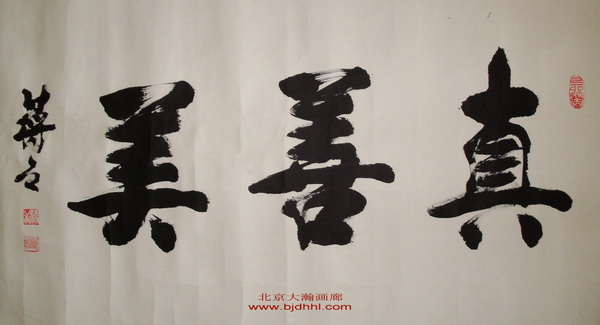 真善美
北京大瀚画廊
www.bjdhhl.com